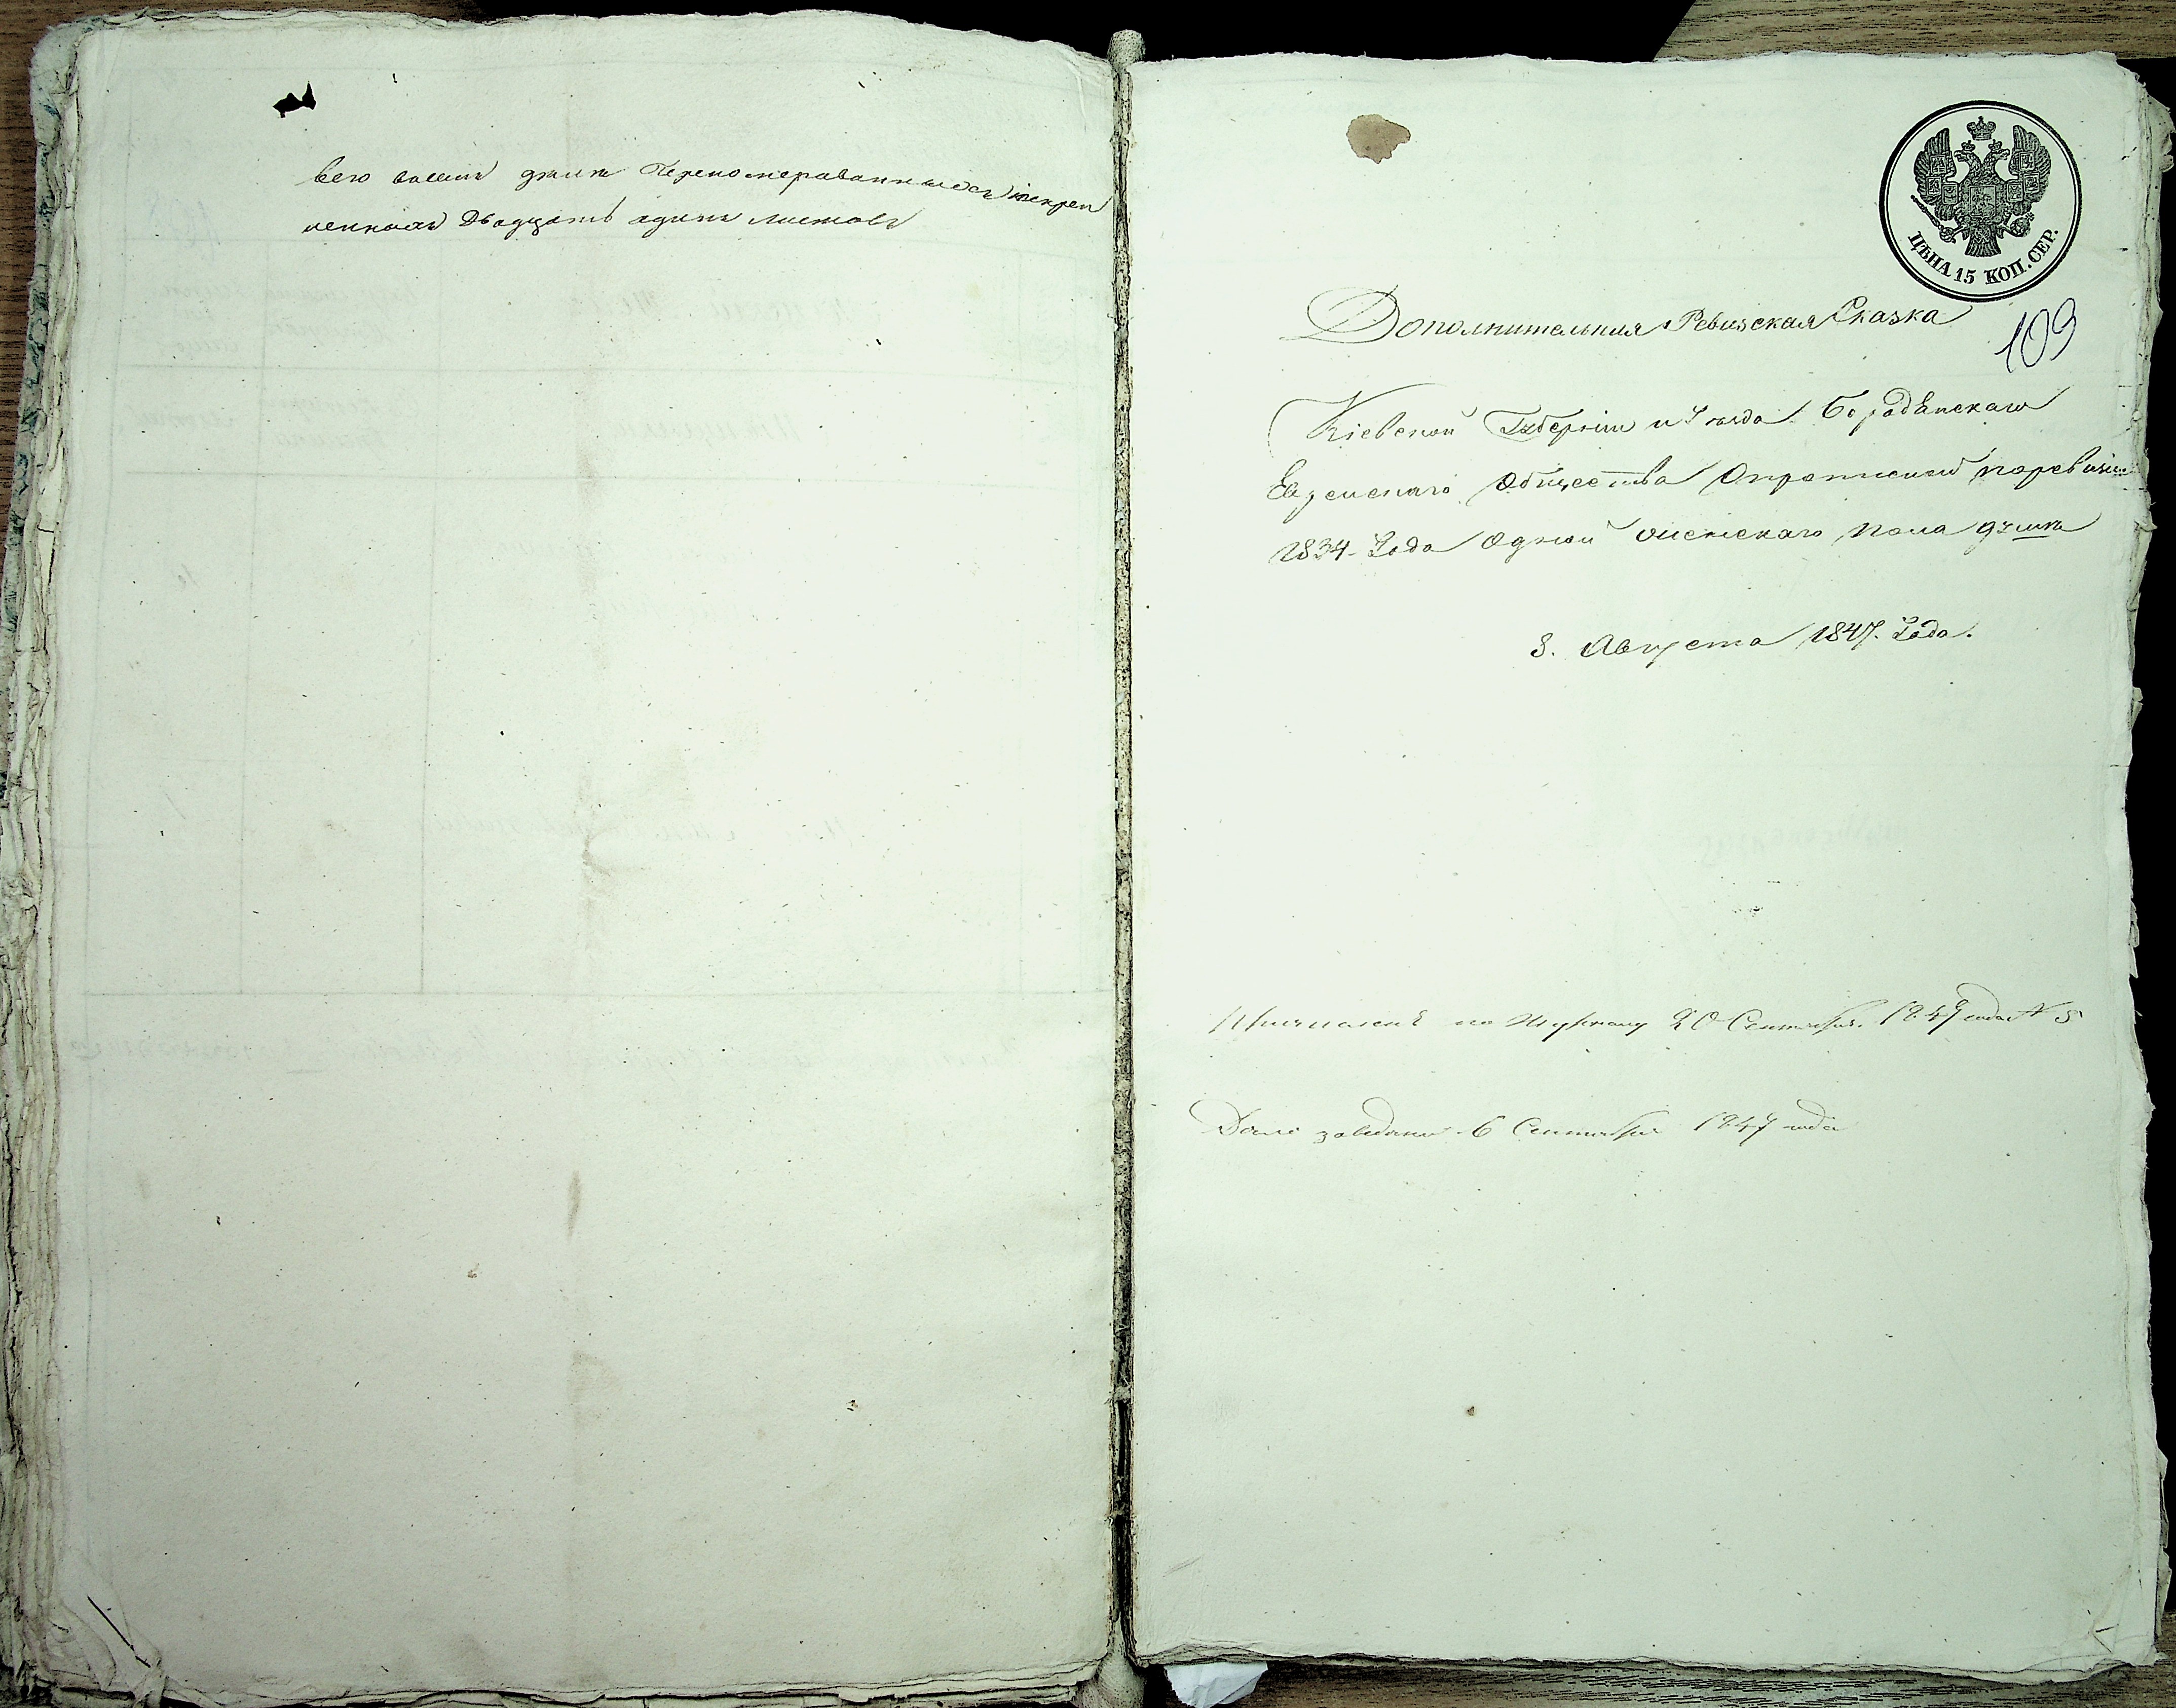 всего въ семъ дѣлѣ перенумерованныхъ и скреп
ленныхъ Двадцать одинъ листовъ
ЦѢНА 15 КОП. СЕР.
Дополнительная Ревизская Сказка
109
Кіевской Губерніи и Уѣзда Бородянскаго
Еврейскаго Общества О пропис­ной по ревизіи
1834. Года Одной женскаго пола душѣ
8. Августа 1847. Года.
по Журналу 20 Сентября 1847 года N 5
Дано 6 Сентября 1847 года